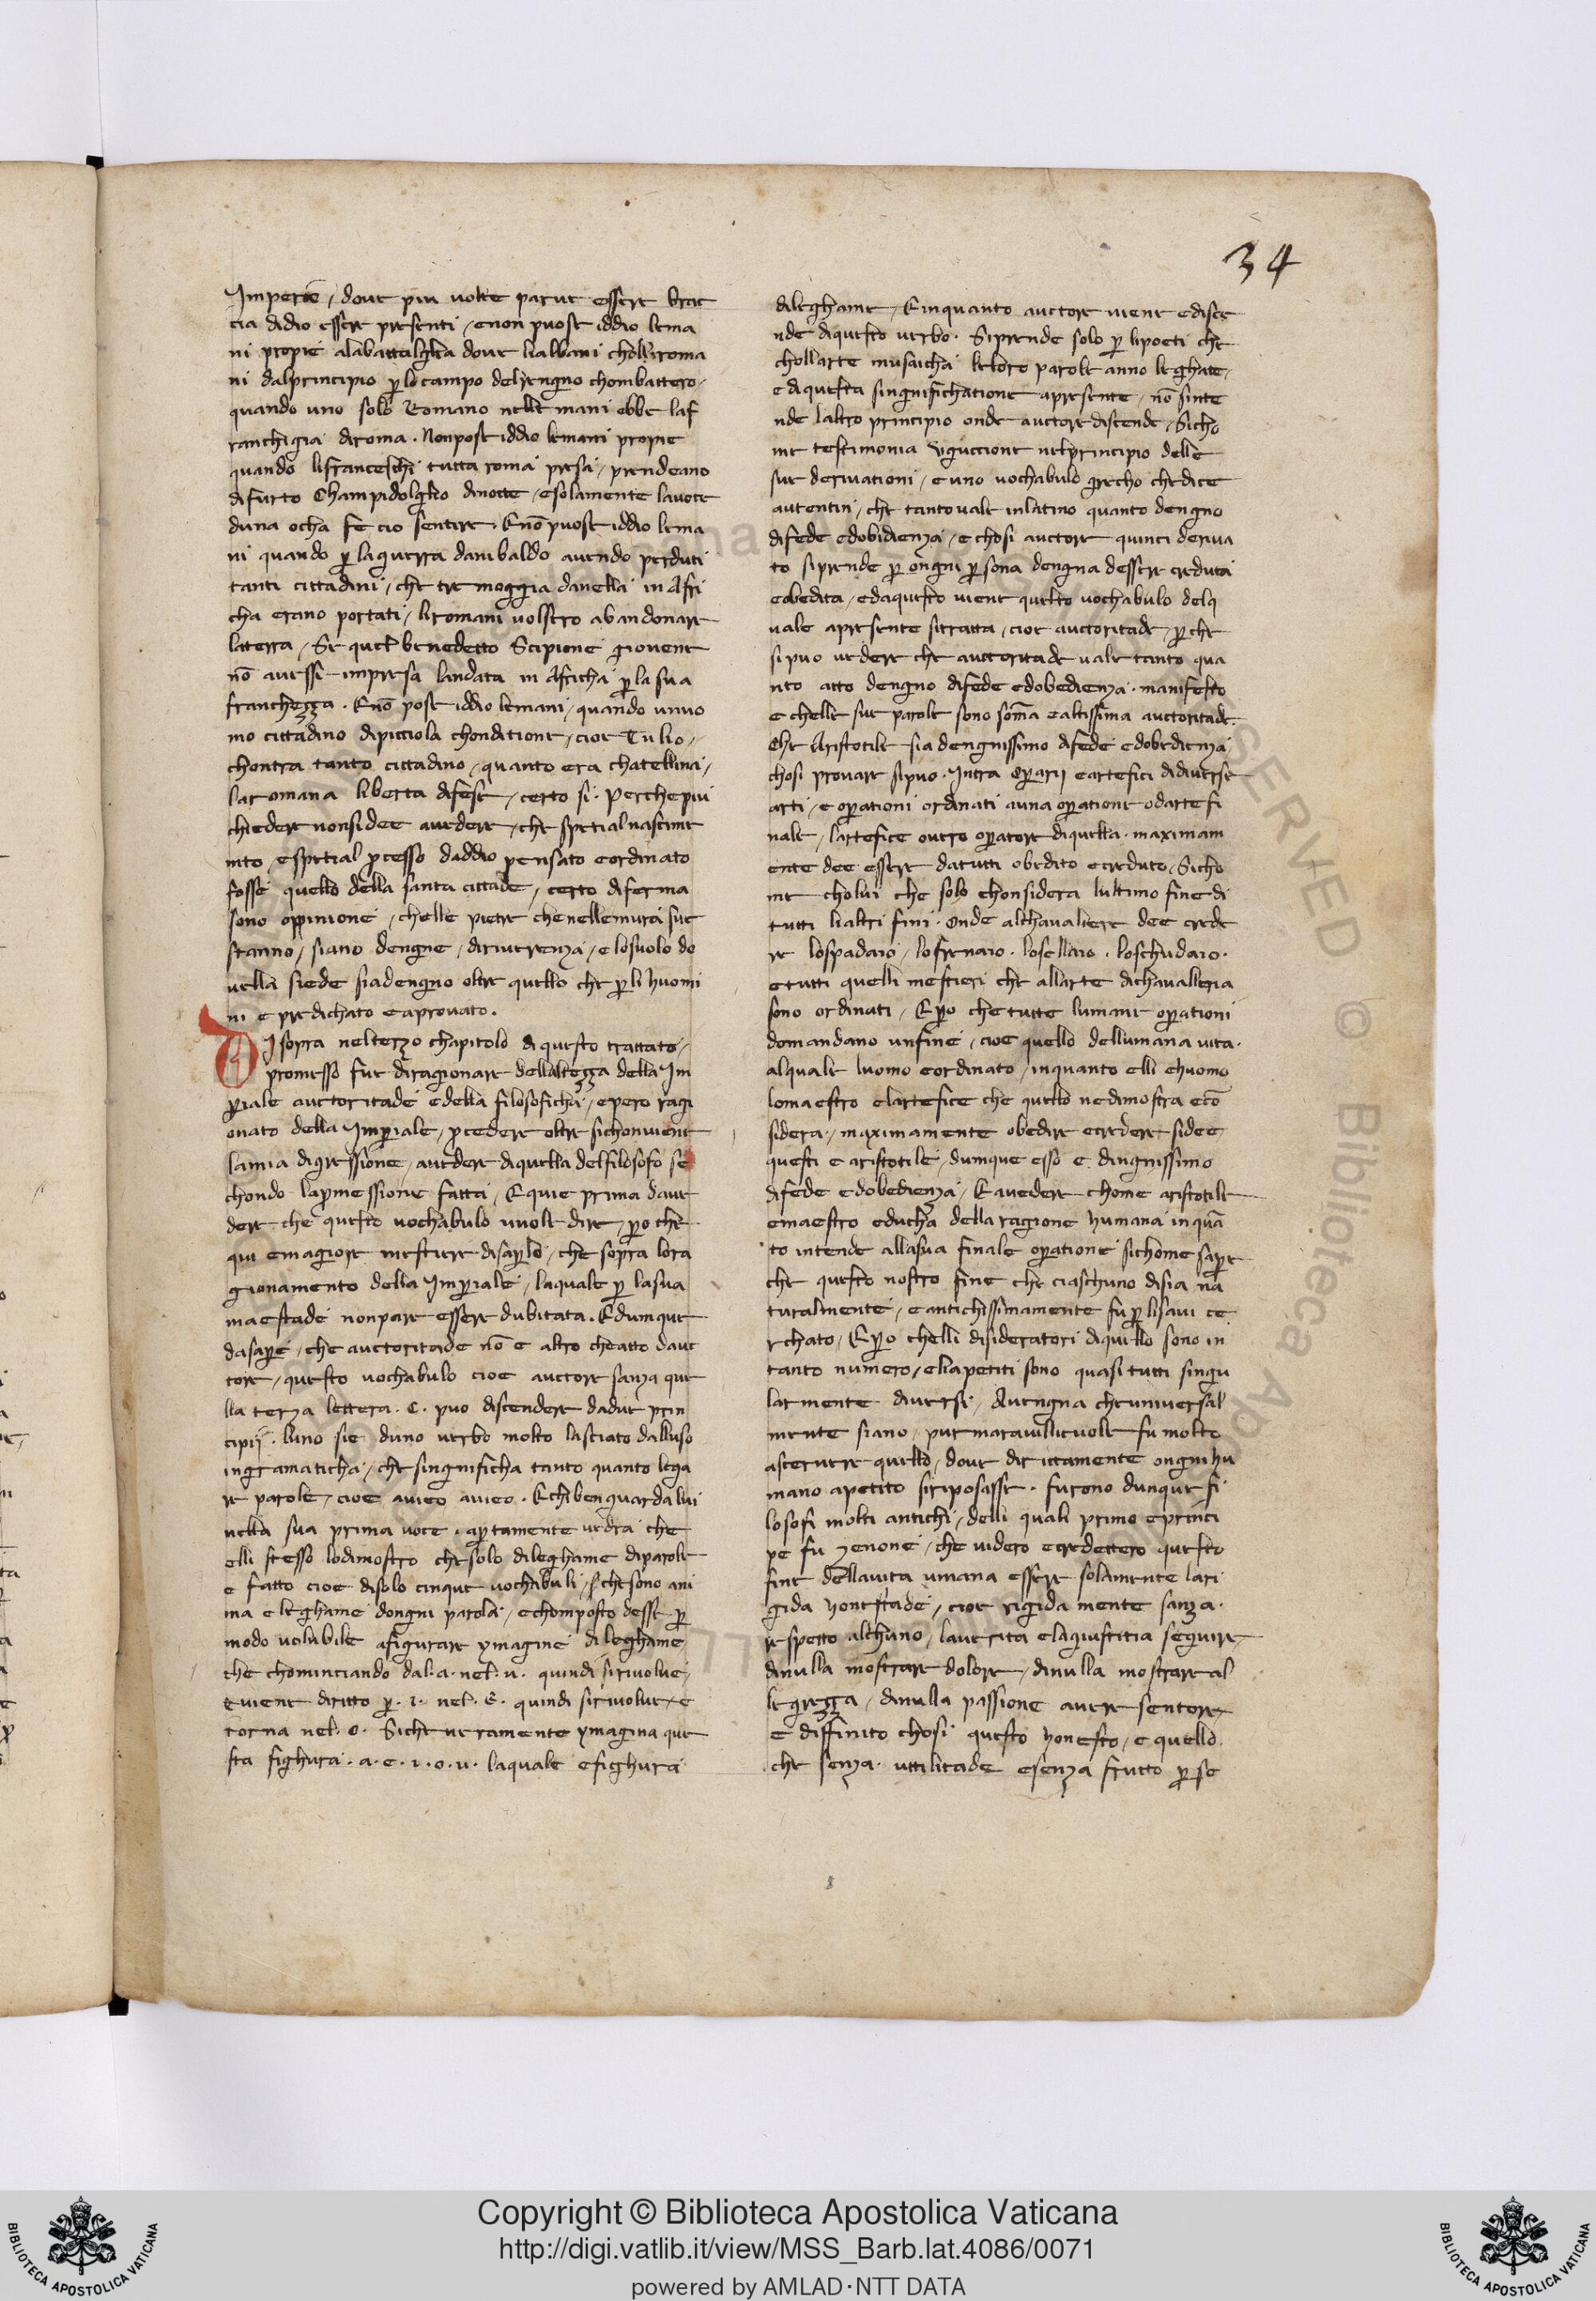 34
Imperie / doue piu uolte parue essere brac
cia didio essere presenti / enon puose iddio lema
ni proprie alabattalglia doue lialbani cholliroma
ni dalprincipio p̱ lo campo delrengno chombattero /
quando uno solo Romano nelle mani ebbe laf
ranchigia diroma . Nonpose iddio lemani proprie
quando lifranceschi tutta roma presa / prendeano
difurto Champidolglio dinotte / esolamente lauoce
duna ocha fe cio sentire . Enō puose iddio lema
ni quando p̱ laguerra danibaldo auendo perduti
tanti cittadini / che tre moggia danella in Afri
cha erano portati / liromani uolsero abandonare
laterra / Se quel benedetto Scipione giouene
nō auessi impresa landata in Africha p̱ la sua
franchezza . Enō pose iddio lemani / quando unuo
mo cittadino dipicciola chonditione / cioe Tulio /
chontra tanto cittadino / quanto era chatellina /
laromana liberta difese / certo si . Perchepiu
chiedere nonsidee auedere / che spetialnascime
nto / espetial p̱cesso daddio pensato eordinato
fosse quello della santa cittade / certo diferma
sono oppinione / chelle pietre chenellemura sue
stanno / siano dengne / diriuerenza / e losuolo do
uella siede siadengno oltre quello che p̱ li huomi
ni e predichato eaprouato .
DI sopra nelterzo chapitolo di questo trattato /
promesso fue diragionare dellaltezza della Im
p̱iale auctoritade edella filosoficha / epero ragi
onato della Imp̱iale / p̱cedere oltre sichonuiene
lamia digressione / auedere diquella delfilosofo se
chondo lap̱messione fatta / Equie prima daue
dere che questo uochabulo uuole dire / p̱o che
qui emagiore mestiere disap̱lo / che sopra lora
gionamento della Imp̱iale / laquale p̱ lasua
maestade nonpare essere dubitata . Edumque
dasap̱e / che auctoritade nō e altro cheatto dauc
tore / questo uochabulo cioe auctore sanza que
lla terza lettera . c . puo discendere dadue prin
cipij . luno sie duno uerbo molto lasciato dalluso
ingramaticha / che singnificha tanto quanto lega
re parole / cioe auieo auieo . Echibenguarda lui
nella sua prima uoce . ap̱tamente uedra che
elli stesso lodimostro che solo dileghame diparole
e fatto cioe disolo cinque uochabuli / chesono ani
ma e leghame dongni parola / echomposto desse p̱
modo uolubile afigurare ymagine di leghame /
che chominciando dal . a . nel . u . quindi siriuolue /
Euiene diritto p̱ . i . nel . E . quindi siriuolue / e
torna nel . o . Siche ueramente ymagina que
sta fighura . a . e . i . o . u . laquale efighura
dileghame / Einquanto auctore uiene ediscie
nde diquesto uerbo . Siprende solo p̱ lipoeti che
chollarte musaicha leloro parole anno leghate /
e diquesta singnifichatione apresente / nō sinte
nde laltro principio onde auctore discende / Sicho
me testimonia Vguccione nelprincipio delle
sue deriuationi / e uno uochabulo grecho che dice
autentin / che tantouale inlatino quanto dengno
difede edobidienza / e chosi auctore quinci deriua
to siprende p̱ ongni p̱sona dengna dessere creduta
eobedita / edaquesto uiene quelto uochabulo delq
uale apresente sitratta / cioe auctoritade / p̱che
sipuo uedere che auctoritade uale tanto qua
nto atto dengno difede edobedienza . manifesto
e chelle sue parole sono sōma ealtissima auctoritade .
Che Aristotile sia dengnissimo difede edobedienza /
chosi prouare sipuo . Intra op̱arij eartefici didiuerse
arti / e op̱ationi ordinati auna op̱atione odartefi
nale / lartefice ouero op̱atore diquella . maximam
ente dee essere datutti obedito ecreduto / Sicho
me cholui che solo chonsidera lultimo finedi
tutti lialtri fini . Onde alchaualiere dee crede
re lospadaio / lofrenaio . losellaro . loschudaro .
etutti quelli mestieri che allarte dichaualleria
sono ordinati / Ep̱o chetutte lumane op̱ationi
domandano unfine / cioe quello dellumana uita .
alquale luomo eordinato / inquanto elli ehuomo
lomaestro elartefice che quello nedimostra ecō
sidera / maximamente obedire ecredere sidee
questi e aristotile / dumque esso e dingnissimo
difede edobedienza / Eauedere chome aristotile
emaestro educha della ragione humana inquā
to intende allasua finale op̱atione sichome sap̱e
che questo nostro fine che ciaschuno disia na
turalmente / eantichissimamente fu p̱ lisaui ce
rchato / Ep̱o chelli disideratori diquello sono in
tanto numero / eliapetiti sono quasi tutti singu
larmente diuersi / Auengna cheuniuersal
mente siano / pur marauilliceuole fu molto
ascernere quello / doue dirittamente ongni hu
mano apetito siriposasse . furono dunque fi
losofi molti antichi / delli quali primo eprinci
pe fu zenone / che uidero ecredettero questo
fine dellauita umana essere solamente lari
gida honestade / cioe rigida mente sanza .
respetto alchuno / lauerita elagiustitia seguire /
dinulla mostrare dolore / dinulla mostrare al
legrezza / dinulla passione auere sentore /
e diffinito chosi questo honesto / e quello .
che senza . uttilitade esenza frutto p̱ se
Copyright © Biblioteca Apostolica Vaticana
http://digi.vatlib.it/view/MSS_Barb.lat.4086/0071
powered by AMLAD·NTT DATA
BIBLIOTECA APOSTOLICA VATICANA
BIBLIOTECA APOSTOLICA VATICANA